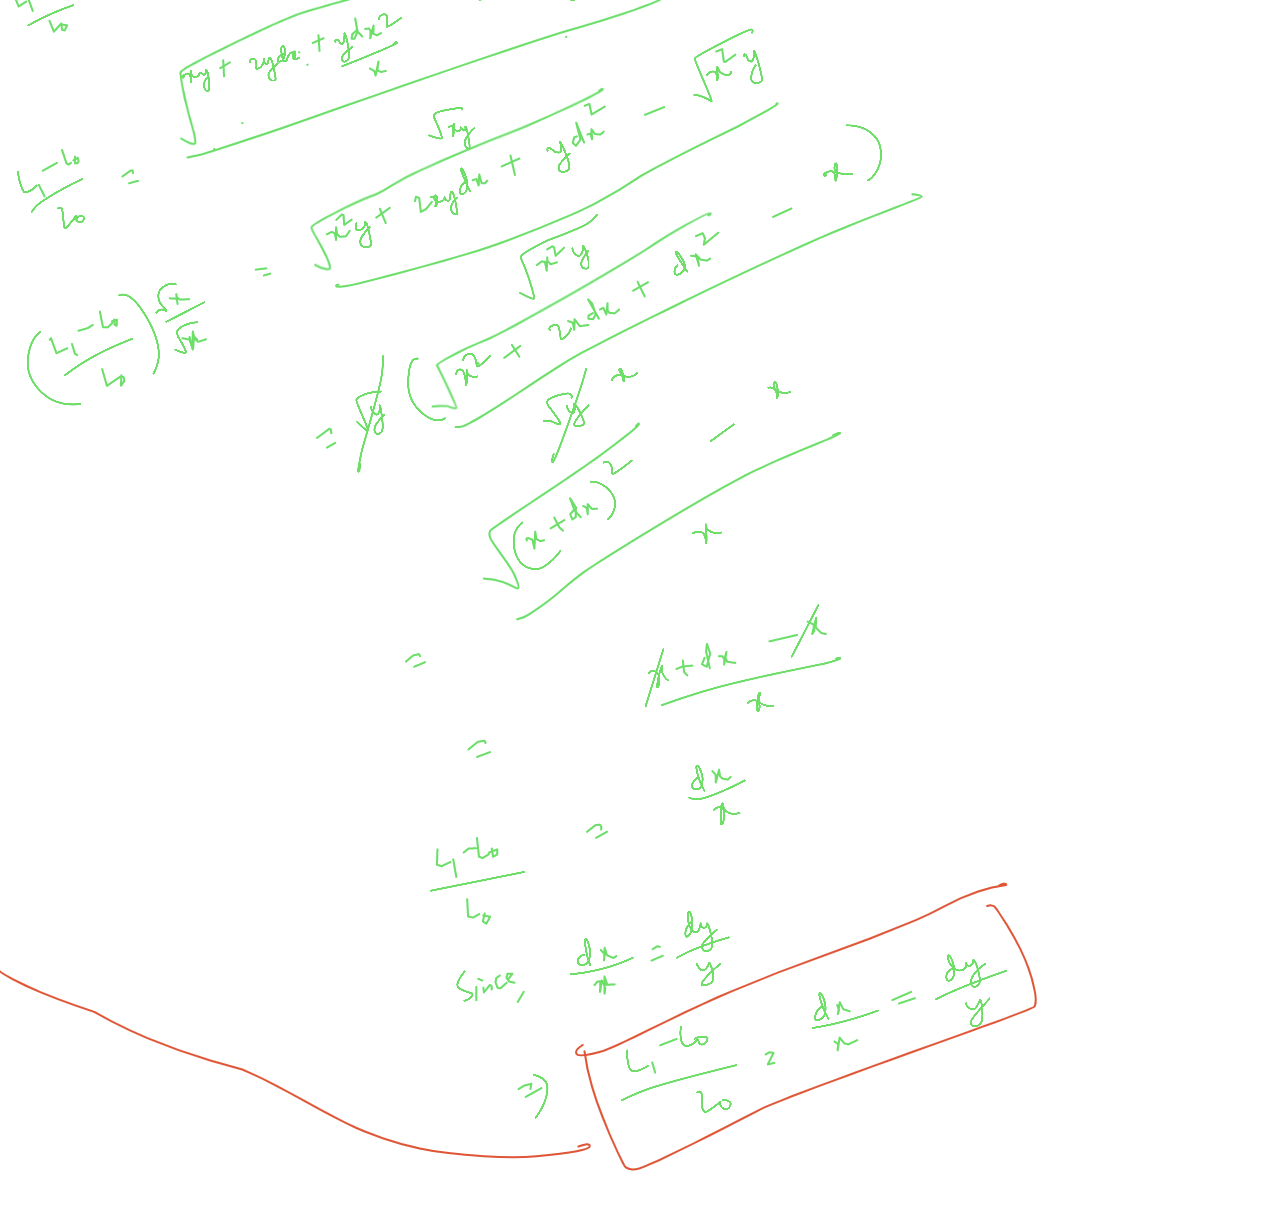 L₁/L₀
√(xy + 2ydx + ydx²/x)
/√xy
(L₁ - L₀)/L₀ = (√(x²y + 2xydx + ydx²) - √(x²y))/√(x²y)
((L₁ - L₀)/L₀) √x/√x = √y (√(x² + 2xdx + dx²) - x)/(√y x)
= (√((x + dx)²) - x)/x
= (x + dx - x)/x
= dx/x
(L₁ - L₀)/L₀ =
Since, dx/x = dy/y
⇒ (L₁ - L₀)/L₀ = dx/x = dy/y